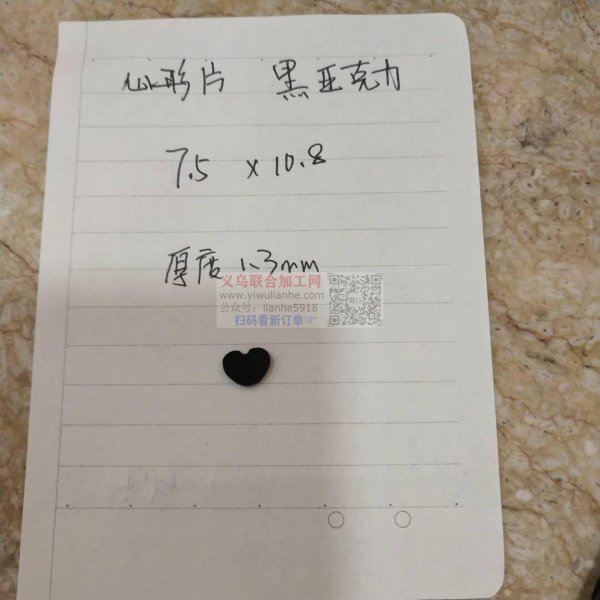 心形片 黑亚克力
7.5 x 10.8
厚度 1.3mm
义乌联合加工网
www.yiwulianhe.com
公众号：lianhe5918
扫码看新订单